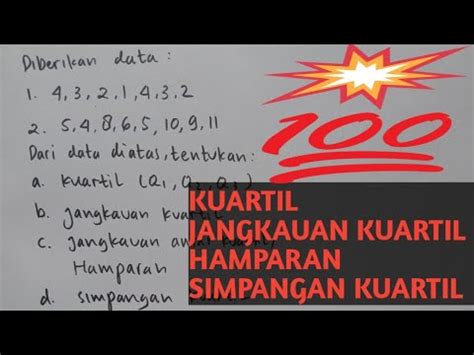 Diberikan data :
1. 4, 3, 2, 1, 4, 3, 2
2. 5, 4, 8, 6, 5, 10, 9, 11
Dari data diatas, tentukan :
a. kuartil (Q1, Q2, Q3)
b. jangkauan kuartil
c. jangkauan
Hamparan
d. simpangan
100
KUARTIL
JANGKAUAN KUARTIL
HAMPARAN
SIMPANGAN KUARTIL